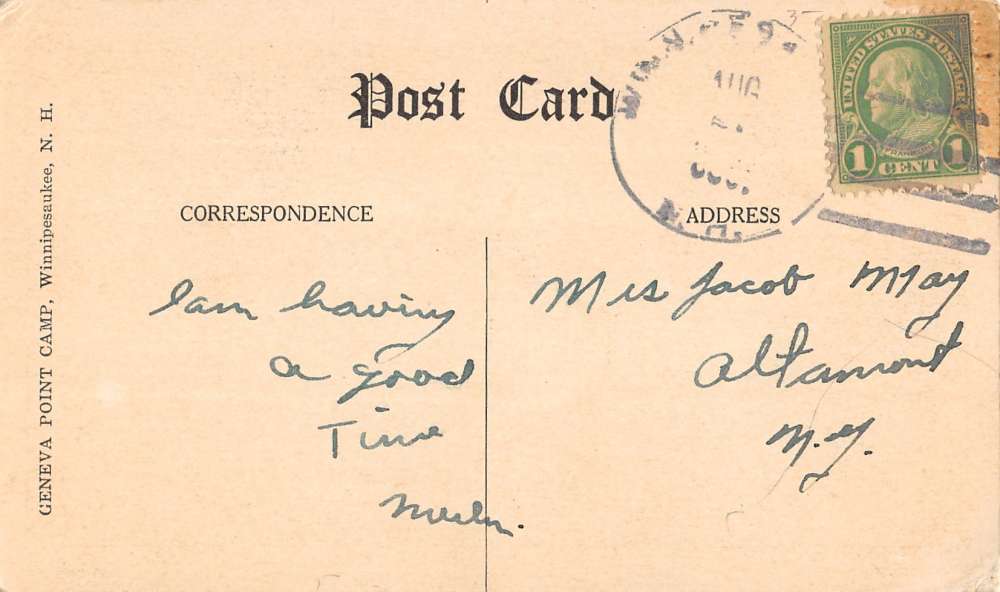 GENEVA POINT CAMP, Winnipesaukee, N. H.
Post Card
CORRESPONDENCE
ADDRESS
AUG
UNITED STATES POSTAGE
FRANKLIN
1 CENT 1
I am having
a good
Time
Mrs Jacob May
Altamont
N.Y.